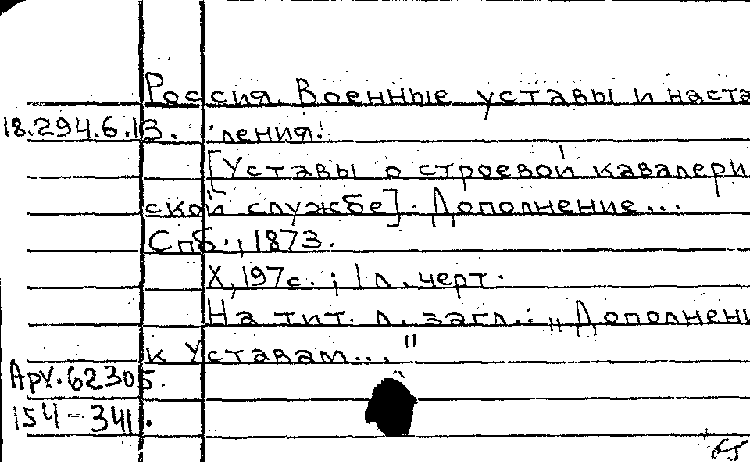 Россия. Военные уставы и наста
18.294.6.13. ления.
[Уставы о строевой кавалери
ской службе]. Дополнение...
Спб., 1873.
X, 197 с.; 1 л. черт.
На тит. л. загл.: „Дополнени
к Уставам..."
Арх. 62305.
154-341.